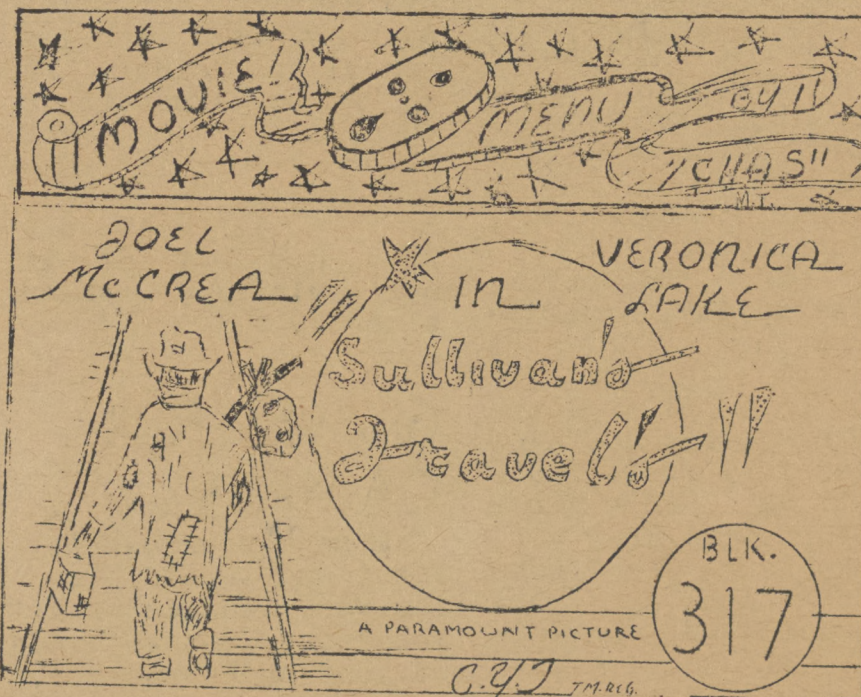 MOVIE!
MENU
BY!!
"CHAS"
M.T.
JOEL
McCREA
IN
VERONICA
LAKE
Sullivan's
Travel's"
BLK.
317
A PARAMOUNT PICTURE
C.Y.J
T.M. REG.